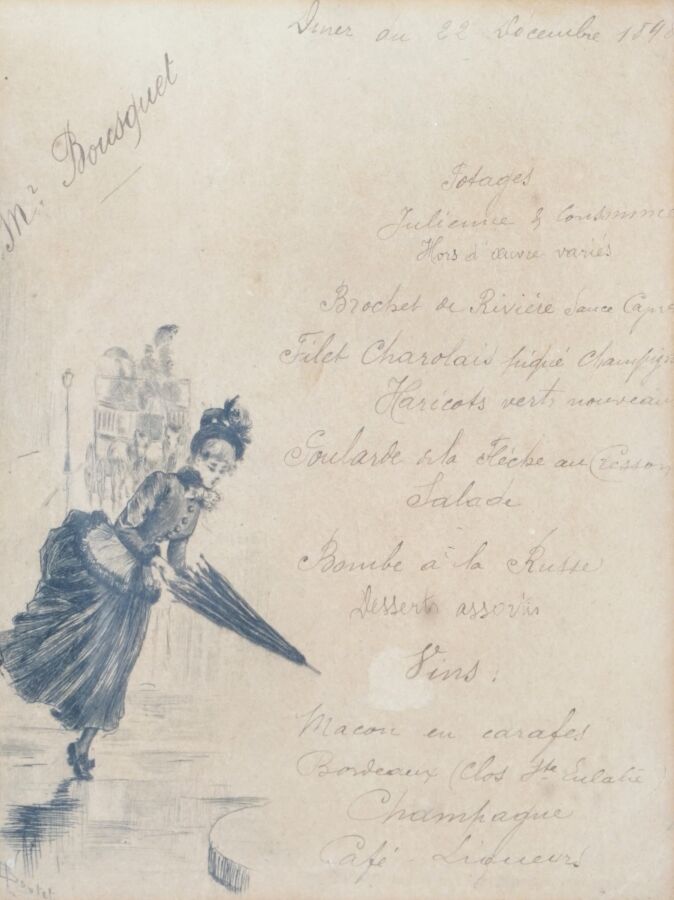 Diner du 22 Décembre 189
Mr. Bousquet
Potages
Julienne & Consomme
Hors d'œuvre variés
Brochet de Rivière Sauce Capre
Filet Charolais piqué Champign
Haricots verts nouveau
Poularde de la Flèche au Cresson
Salade
Bombe à la Russe
Desserts assortis
Vins :
Macon en carafes
Bordeaux (Clos Ste Eulalie)
Champagne
Café - Liqueurs